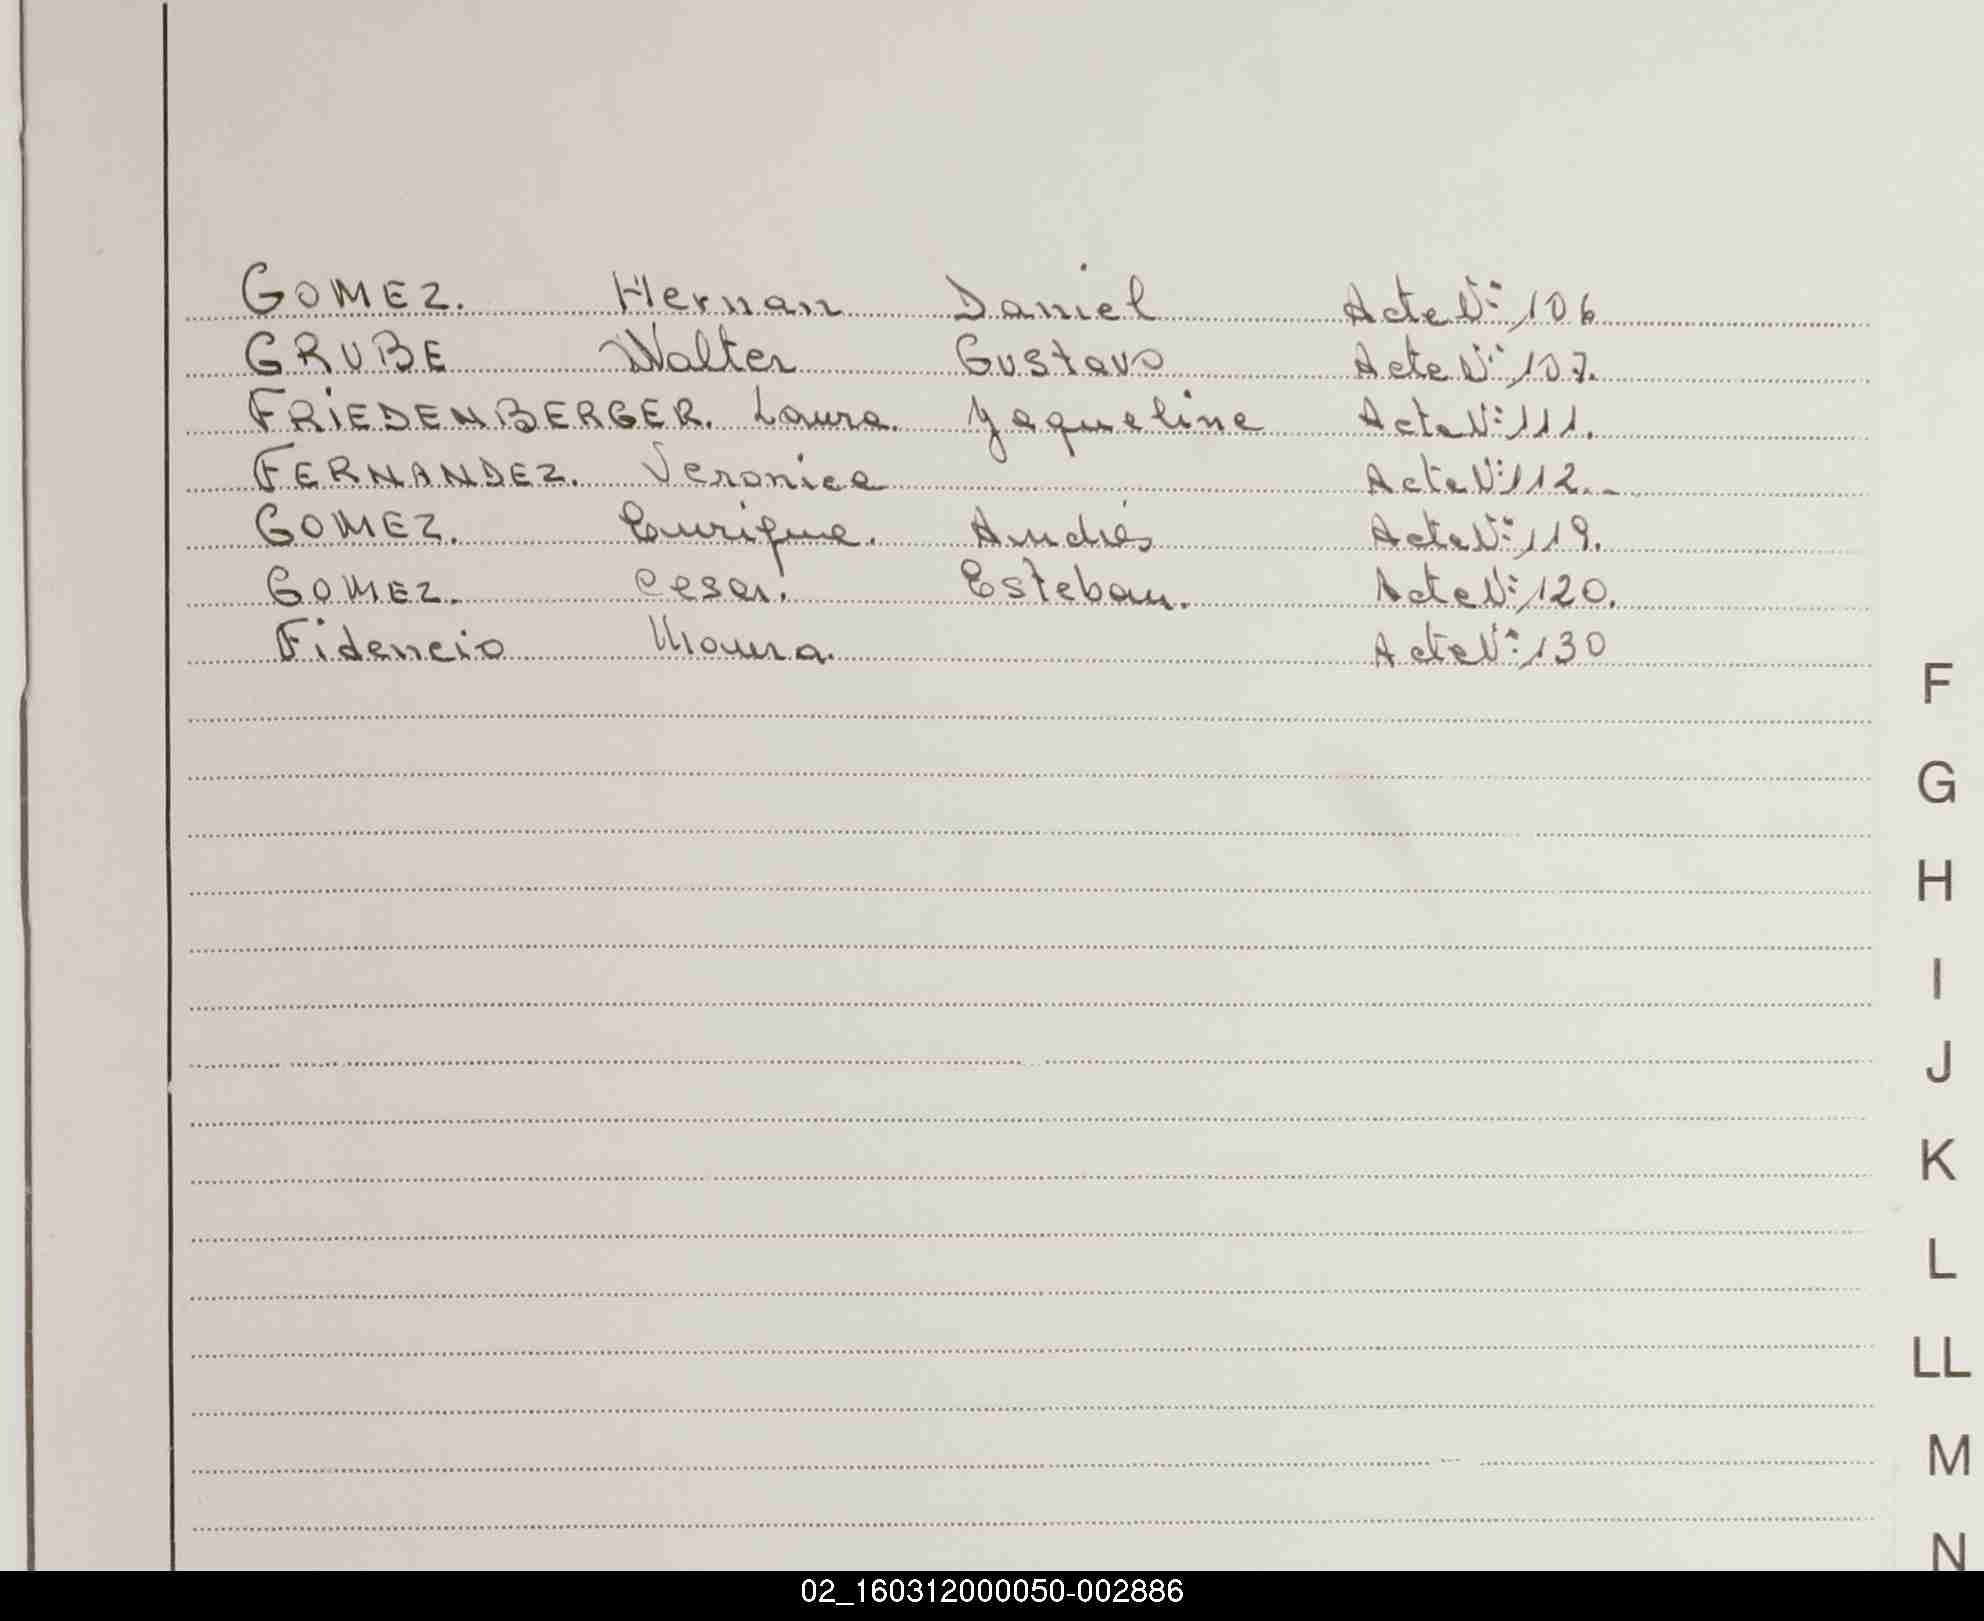 GOMEZ. Hernan Daniel Acta Nº: 106
GRUBE Walter Gustavo Acta Nº: 107.
FRIEDENBERGER. Laura. Jaqueline Acta Nº: 111.
FERNANDEZ. Veronica Acta Nº: 112.-
GOMEZ. Enrique. Andrés Acta Nº: 119.
GOMEZ. Cesar. Esteban. Acta Nº: 120.
Fidencio Acta Nº: 130
F
G
H
I
J
K
L
LL
M
N
02_160312000050-002886